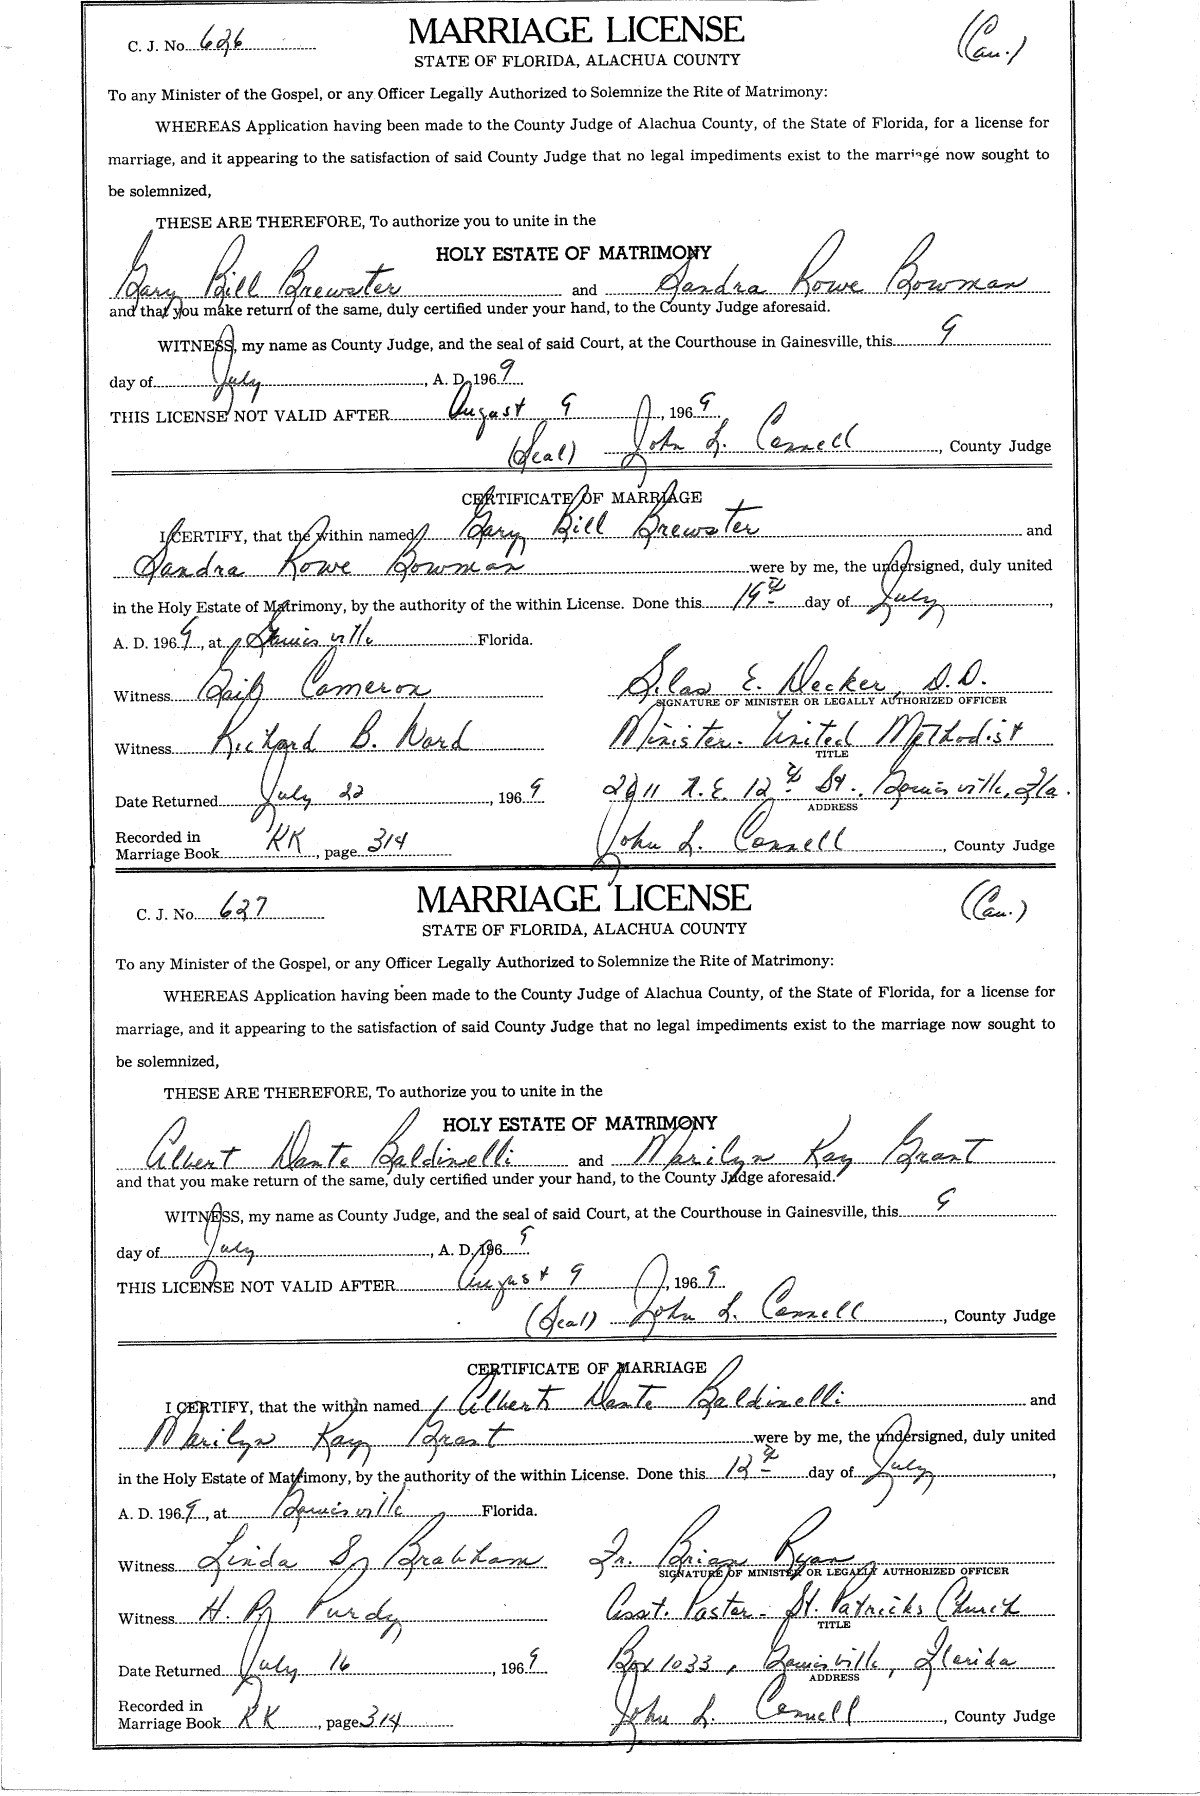 C. J. No. 626 MARRIAGE LICENSE (Cau.)
STATE OF FLORIDA, ALACHUA COUNTY
To any Minister of the Gospel, or any Officer Legally Authorized to Solemnize the Rite of Matrimony:
WHEREAS Application having been made to the County Judge of Alachua County, of the State of Florida, for a license for
marriage, and it appearing to the satisfaction of said County Judge that no legal impediments exist to the marriage now sought to
be solemnized,
THESE ARE THEREFORE, To authorize you to unite in the
HOLY ESTATE OF MATRIMONY
Gary Bill Brewster and Sandra Rowe Bowman
and that you make return of the same, duly certified under your hand, to the County Judge aforesaid.
WITNESS, my name as County Judge, and the seal of said Court, at the Courthouse in Gainesville, this 9
day of July, A. D. 1969
THIS LICENSE NOT VALID AFTER August 9, 1969
(Seal) John L. Connell, County Judge
CERTIFICATE OF MARRIAGE
I CERTIFY, that the within named Gary Bill Brewster and
Sandra Rowe Bowman were by me, the undersigned, duly united
in the Holy Estate of Matrimony, by the authority of the within License. Done this 19th day of July,
A. D. 1969, at Gainesville Florida.
Witness Gail Cameron Silas E. Decker, D.D.
SIGNATURE OF MINISTER OR LEGALLY AUTHORIZED OFFICER
Witness Richard B. Ward Minister - United Methodist
TITLE
Date Returned July 22, 1969 2611 N.E. 12th St., Gainesville, Fla.
ADDRESS
Recorded in
Marriage Book KK, page 314 John L. Connell, County Judge
C. J. No. 627 MARRIAGE LICENSE (Cau.)
STATE OF FLORIDA, ALACHUA COUNTY
To any Minister of the Gospel, or any Officer Legally Authorized to Solemnize the Rite of Matrimony:
WHEREAS Application having been made to the County Judge of Alachua County, of the State of Florida, for a license for
marriage, and it appearing to the satisfaction of said County Judge that no legal impediments exist to the marriage now sought to
be solemnized,
THESE ARE THEREFORE, To authorize you to unite in the
HOLY ESTATE OF MATRIMONY
Albert Dante Baldinelli and Marilyn Kay Grant
and that you make return of the same, duly certified under your hand, to the County Judge aforesaid.
WITNESS, my name as County Judge, and the seal of said Court, at the Courthouse in Gainesville, this 9
day of July, A. D. 1969
THIS LICENSE NOT VALID AFTER August 9, 1969
(Seal) John L. Connell, County Judge
CERTIFICATE OF MARRIAGE
I CERTIFY, that the within named Albert Dante Baldinelli and
Marilyn Kay Grant were by me, the undersigned, duly united
in the Holy Estate of Matrimony, by the authority of the within License. Done this 12th day of July,
A. D. 1969, at Gainesville Florida.
Witness Linda S. Brabham Fr. Brian Ryan
SIGNATURE OF MINISTER OR LEGALLY AUTHORIZED OFFICER
Witness H. P. Purdy Asst. Pastor - St. Patricks Church
TITLE
Date Returned July 16, 1969 Box 1033, Gainesville, Florida
ADDRESS
Recorded in
Marriage Book KK, page 314 John L. Connell, County Judge